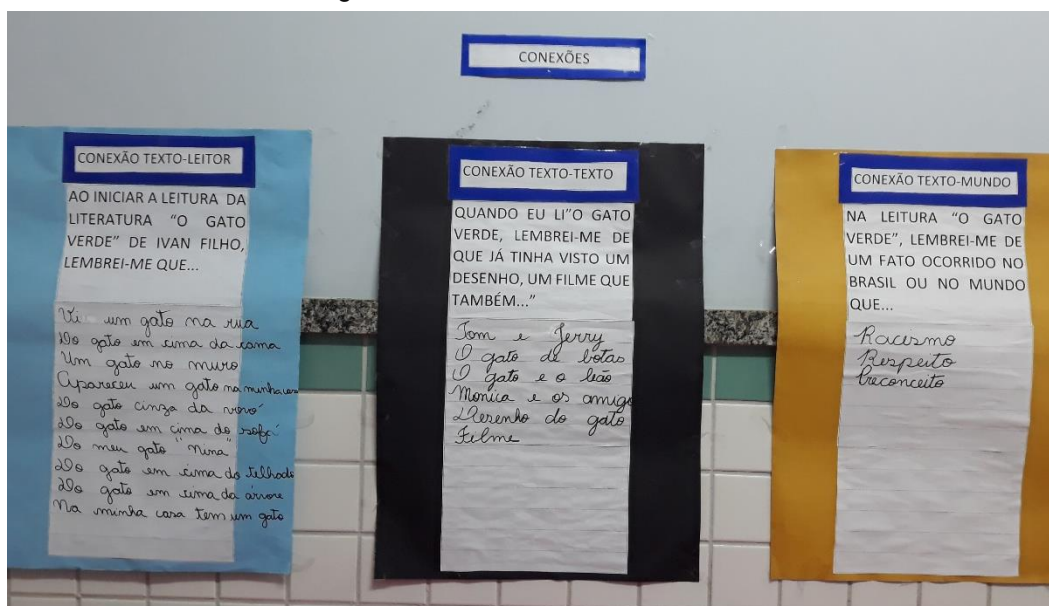 CONEXÕES
CONEXÃO TEXTO-LEITOR
AO INICIAR A LEITURA DA
LITERATURA "O GATO
VERDE" DE IVAN FILHO,
LEMBREI-ME QUE...
Vi um gato na rua
Do gato em cima da cama
Um gato no muro
Apareceu um gato na minha casa
Do gato cinza da vovó
Do gato em cima do sofá
Do meu gato "nina"
Do gato em cima do telhado
Do gato em cima da árvore
Na minha casa tem um gato
CONEXÃO TEXTO-TEXTO
QUANDO EU LI"O GATO
VERDE, LEMBREI-ME DE
QUE JÁ TINHA VISTO UM
DESENHO, UM FILME QUE
TAMBÉM..."
Tom e Jerry
O gato de botas
O gato e o leão
Monica e os amigo
Desenho do gato
Filme
CONEXÃO TEXTO-MUNDO
NA LEITURA "O GATO
VERDE", LEMBREI-ME DE
UM FATO OCORRIDO NO
BRASIL OU NO MUNDO
QUE...
Racismo
Respeito
Preconceito